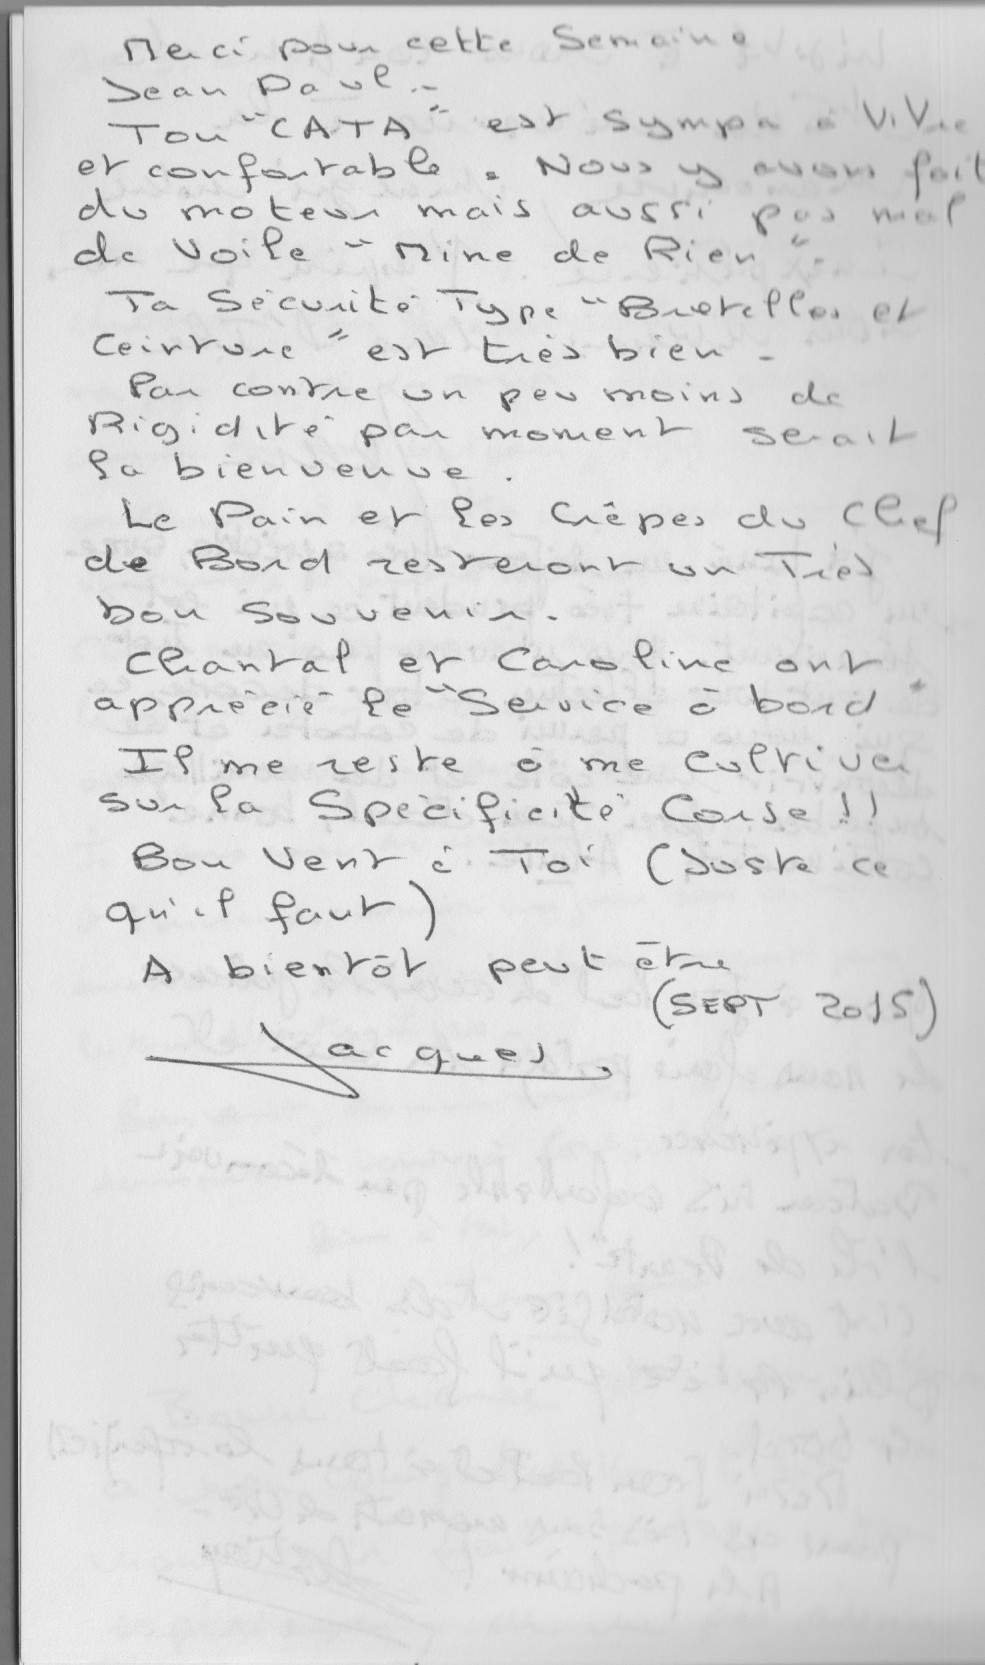 Merci pour cette Semaine
Jean Paul.-
Ton "CATA" est Sympa à ViVre
et confortable. Nous y avons fait
du moteur mais aussi pas mal
de Voile "Mine de Rien"
Ta Sécurité Type "Bretelles et
Ceinture" est très bien -
Par contre un peu moins de
Rigidité par moment serait
la bienvenue.
Le Pain et les Crêpes du Chef
de Bord resteront un Très
bon Souvenir.
Chantal et Caroline ont
apprécié le "Service à bord"
Il me reste à me Cultiver
sur la Spécificité Corse!!
Bon Vent à Toi (Juste ce
qu'il faut)
A bientôt peut être
(SEPT 2015)
Jacques